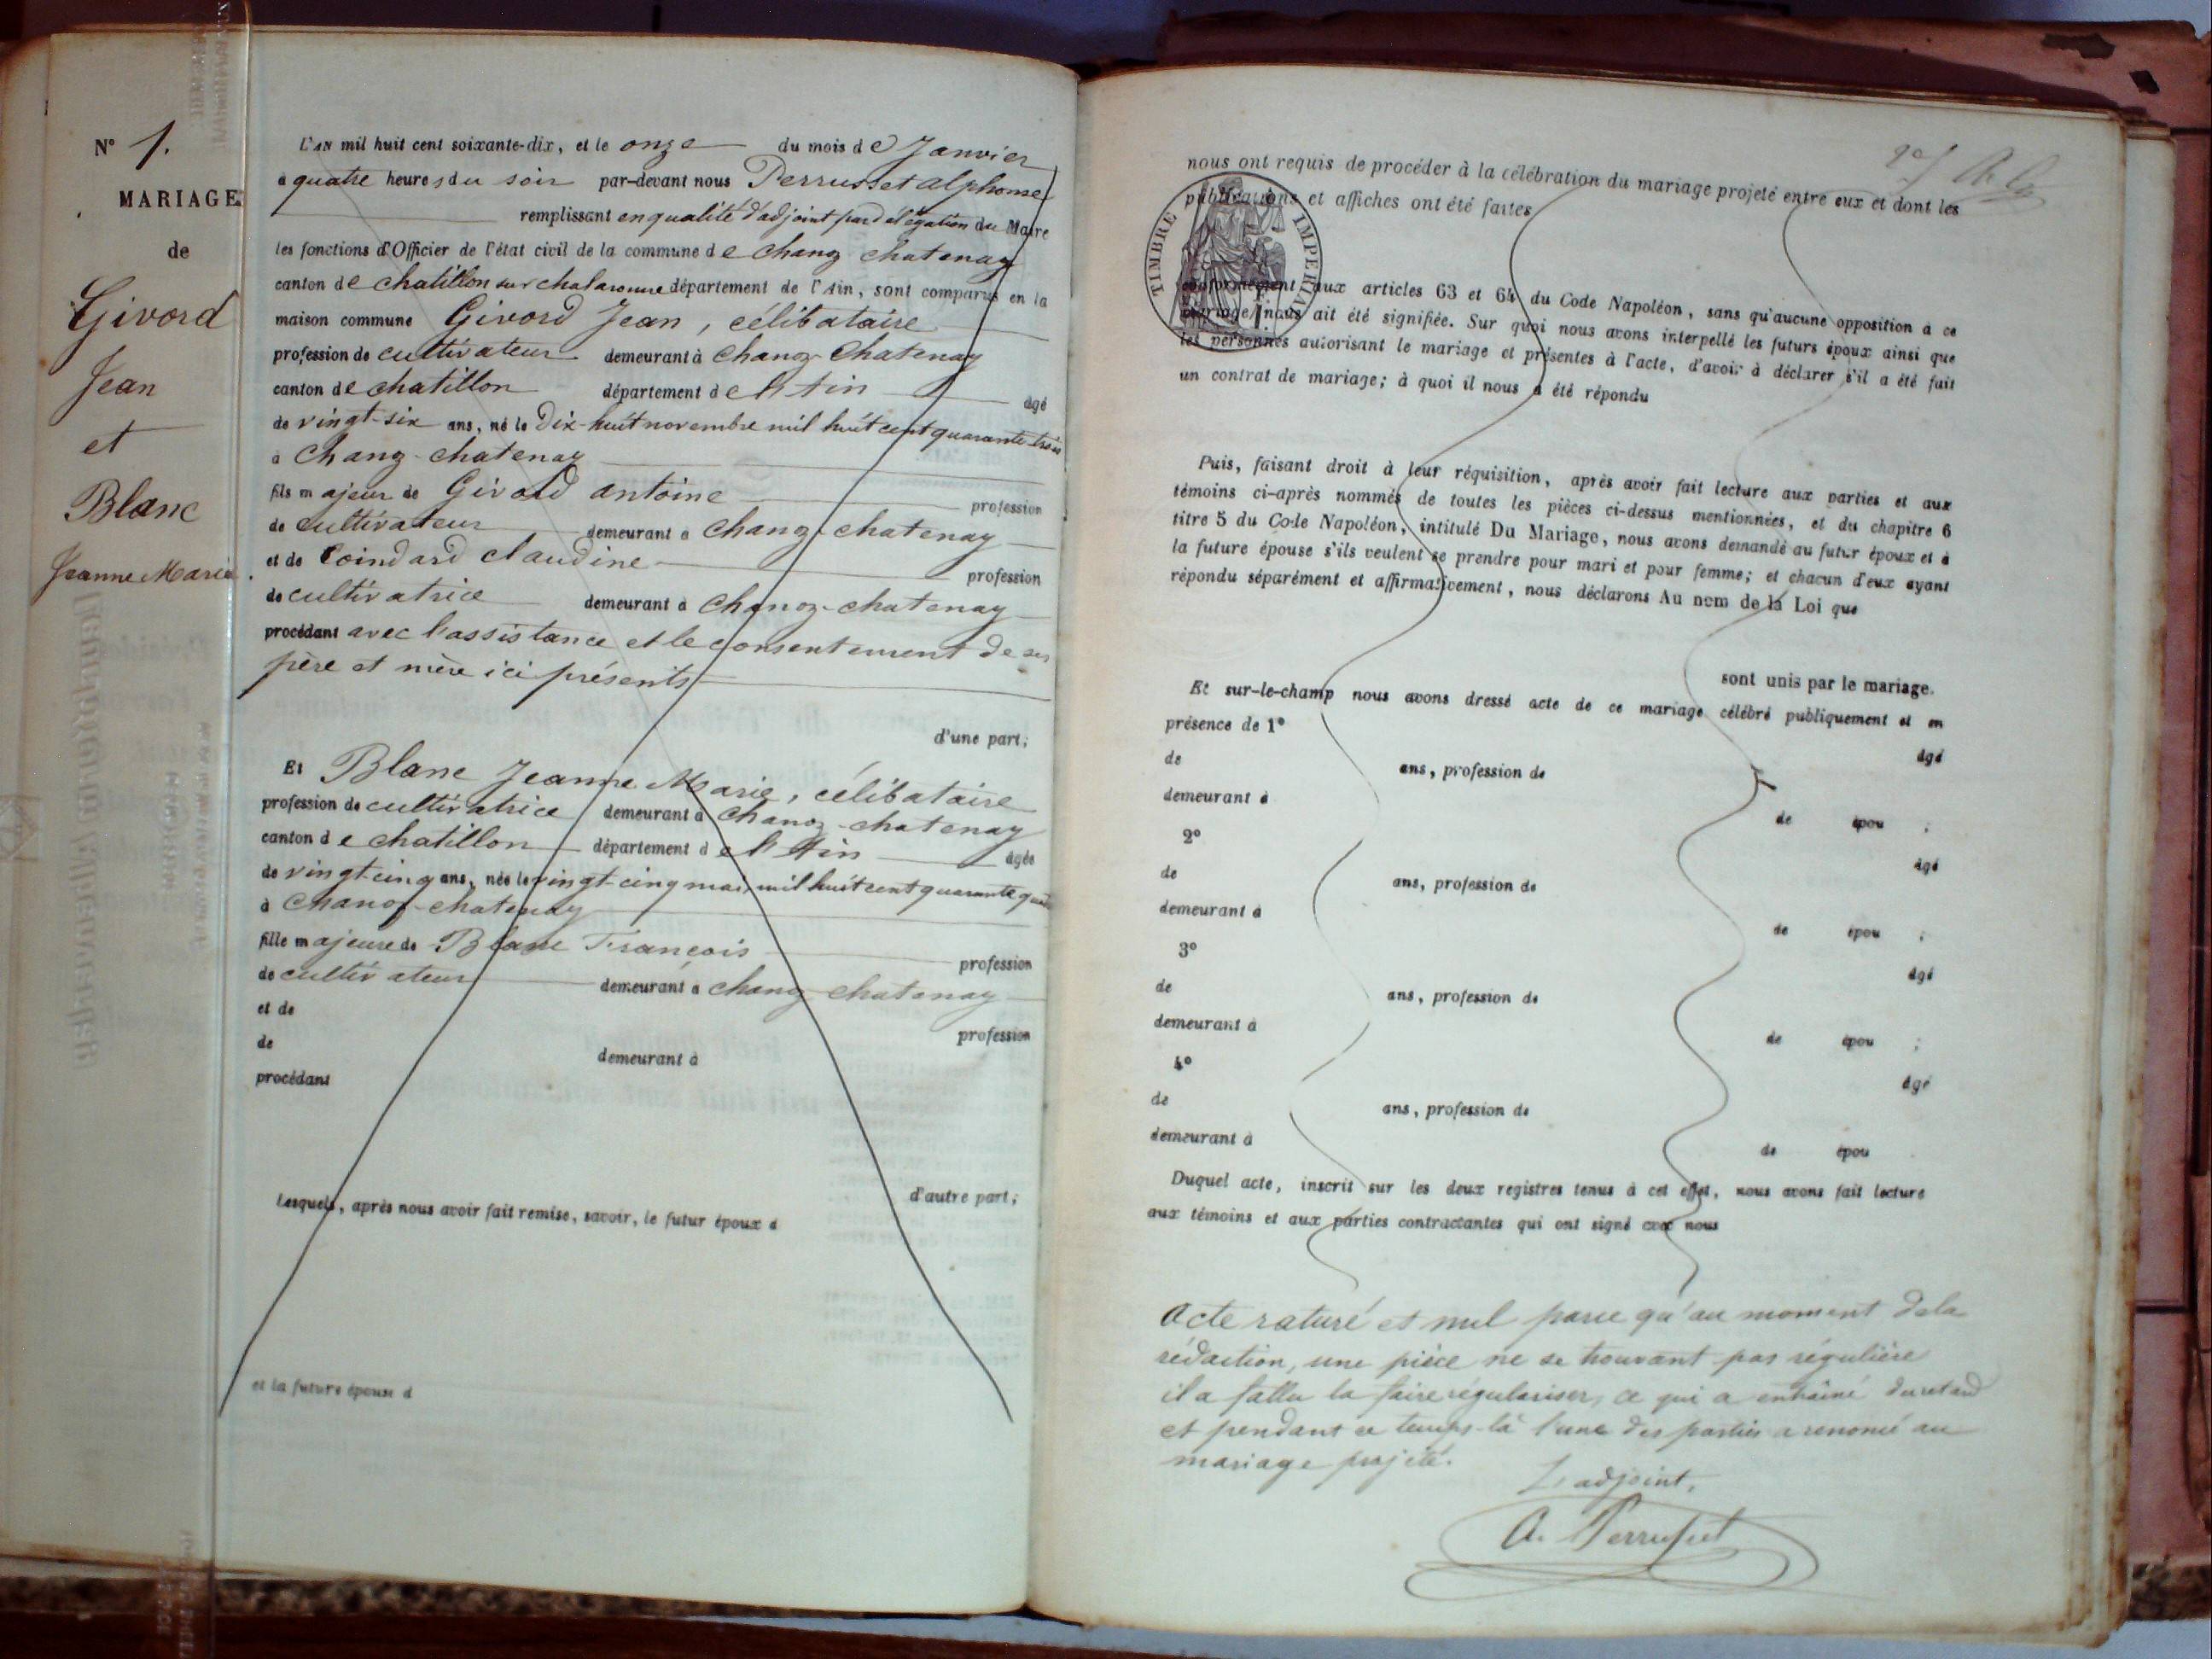 N° 1.
MARIAGE
de
Givord
Jean
et
Blanc
Jeanne Marie
L'AN mil huit cent soixante-dix, et le onze du mois de Janvier
à quatre heures du soir par-devant nous Perrusset alphonse
remplissant en qualité d'adjoint par délégation du Maire
les fonctions d'Officier de l'état civil de la commune de Chanoz chatenay
canton de chatillon sur chalaronne département de l'Ain, sont comparus en la
maison commune Givord Jean, célibataire
profession de cultivateur demeurant à Chanoz-Chatenay
canton de chatillon département de l'Ain âgé
de vingt-six ans, né le Dix-huit novembre mil huit cent quarante trois
à Chanoz-chatenay
fils majeur de Givord antoine profession
de cultivateur demeurant à Chanoz-chatenay
et de Coindard claudine profession
de cultivatrice demeurant à Chanoz-chatenay
procédant avec l'assistance et le consentement de ses
père et mère ici présents
d'une part;
Et Blanc Jeanne Marie, célibataire
profession de cultivatrice demeurant à Chanoz-chatenay
canton de chatillon département de l'Ain âgée
de vingt-cinq ans, née le vingt-cinq mai mil huit cent quarante quatre
à Chanoz-chatenay
fille majeure de Blanc François profession
de cultivateur demeurant à Chanoz chatenay
et de profession
de demeurant à
procédant
d'autre part;
Lesquels, après nous avoir fait remise, savoir, le futur époux d
et la future épouse d
nous ont requis de procéder à la célébration du mariage projeté entre eux et dont les
publications et affiches ont été faites
TIMBRE IMPERIAL
conformément aux articles 63 et 64 du Code Napoléon, sans qu'aucune opposition à ce
mariage nous ait été signifiée. Sur quoi nous avons interpellé les futurs époux ainsi que
les personnes autorisant le mariage et présentes à l'acte, d'avoir à déclarer s'il a été fait
un contrat de mariage; à quoi il nous a été répondu
Puis, faisant droit à leur réquisition, après avoir fait lecture aux parties et aux
témoins ci-après nommés de toutes les pièces ci-dessus mentionnées, et du chapitre 6
titre 5 du Code Napoléon, intitulé Du Mariage, nous avons demandé au futur époux et à
la future épouse s'ils veulent se prendre pour mari et pour femme; et chacun d'eux ayant
répondu séparément et affirmativement, nous déclarons Au nom de la Loi que
sont unis par le mariage.
Et sur-le-champ nous avons dressé acte de ce mariage célébré publiquement et en
présence de 1° âgé
de ans, profession de
demeurant à de épou ;
2° âgé
de ans, profession de
demeurant à de épou ;
3° âgé
de ans, profession de
demeurant à de épou ;
4° âgé
de ans, profession de
demeurant à de épou
Duquel acte, inscrit sur les deux registres tenus à cet effet, nous avons fait lecture
aux témoins et aux parties contractantes qui ont signé avec nous
Acte raturé et nul parce qu'au moment de la
rédaction, une pièce ne se trouvant pas régulière
il a fallu la faire régulariser, ce qui a entraîné du retard
et pendant ce temps-là l'une des parties a renoncé au
mariage projeté.
L'adjoint,
A. Perrusset